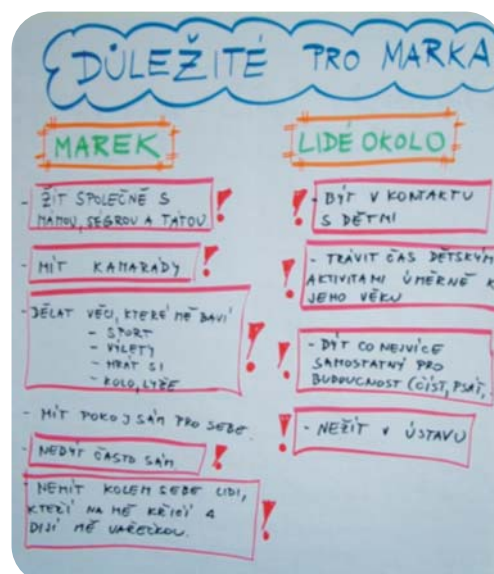 DŮLEŽITÉ PRO MARKA
MAREK
- ŽÍT SPOLEČNĚ S
MÁMOU, SÉGROU A TÁTOU
- MÍT KAMARÁDY
- DĚLAT VĚCI, KTERÉ MĚ BAVÍ
- SPORT
- VÝLETY
- HRÁT SI
- KOLO, LYŽE
- MÍT POKOJ SÁM PRO SEBE.
- NEBÝT ČASTO SÁM
- NEMÍT KOLEM SEBE LIDI,
KTEŘÍ NA MĚ KŘIČÍ A
BIJÍ MĚ VAŘEČKOU.
LIDÉ OKOLO
- BÝT V KONTAKTU
S DĚTMI
- TRÁVIT ČAS DĚTSKÝM
AKTIVITAMI ÚMĚRNĚ K
JEHO VĚKU
- BÝT CO NEJVÍCE
SAMOSTATNÝ PRO
BUDOUCNOST (ČÍST, PSÁT,
- NEŽÍT V ÚSTAVU